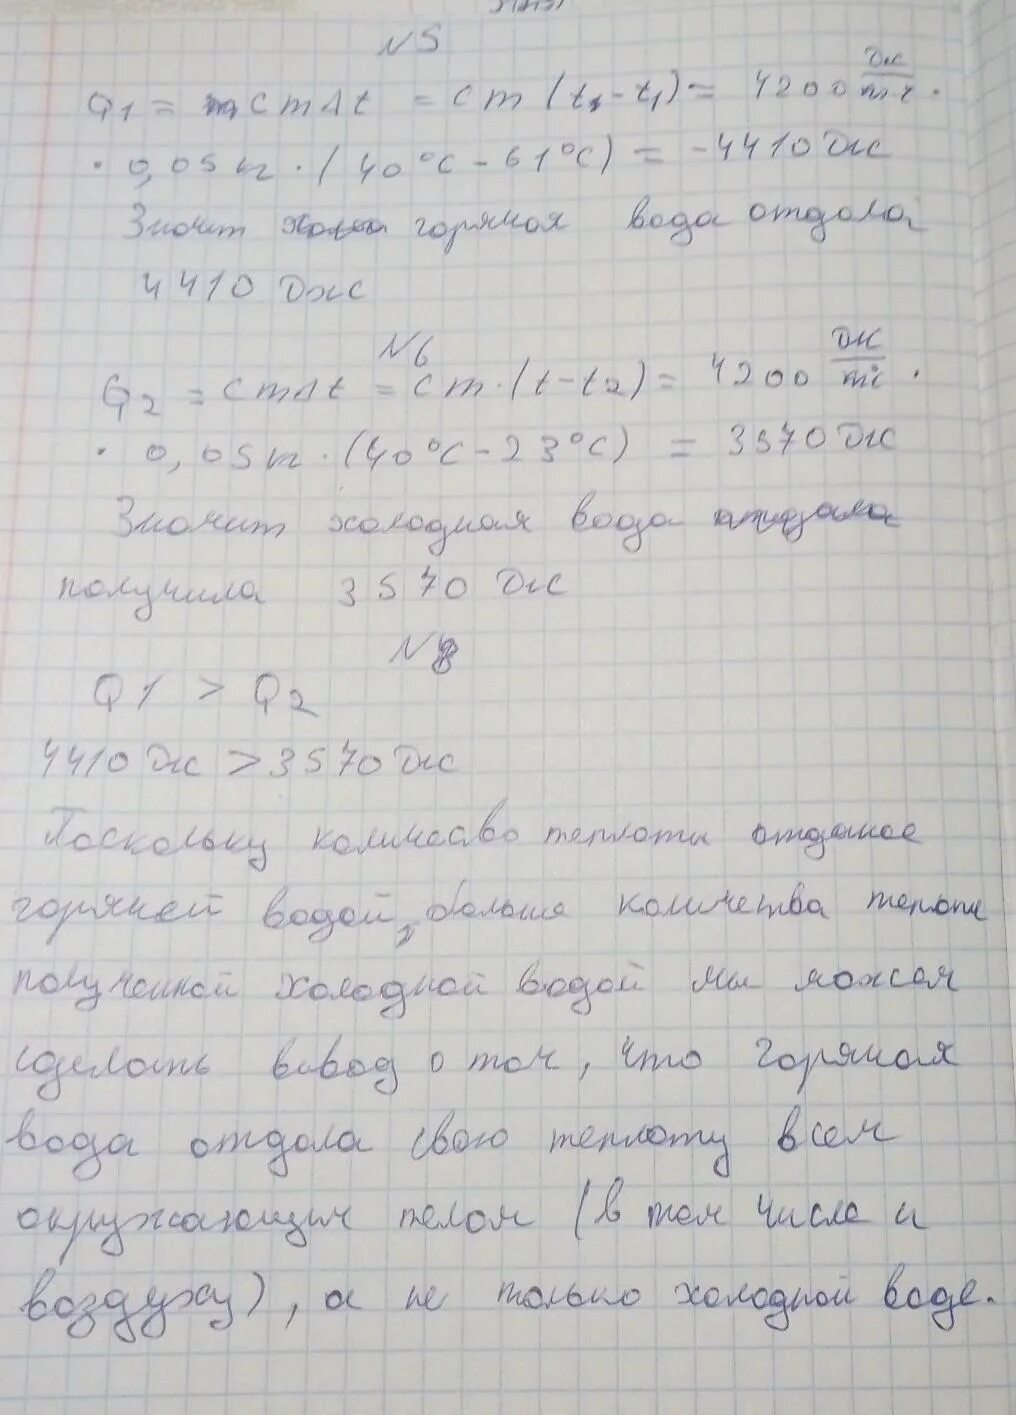 N5
Q1 = cmΔt = cm(t - t1) = 4200 Дж/кг°С ·
· 0,05кг · (40°С - 61°С) = -4410 Дж
Значит горячая вода отдала
4410 Дж
N6
Q2 = cmΔt = cm·(t-t2) = 4200 Дж/кг°С ·
· 0,05кг · (40°С - 23°С) = 3570 Дж
Значит холодная вода
получила 3570 Дж
N8
Q1 > Q2
4410 Дж > 3570 Дж
Поскольку количесво теплоты отданое
горячей водой, больше количества теплоты
полученной холодной водой мы можем
сделать вывод о том, что горячая
вода отдала свою теплоту всем
окружающим телам (в том числе и
воздуху), а не только холодной воде.